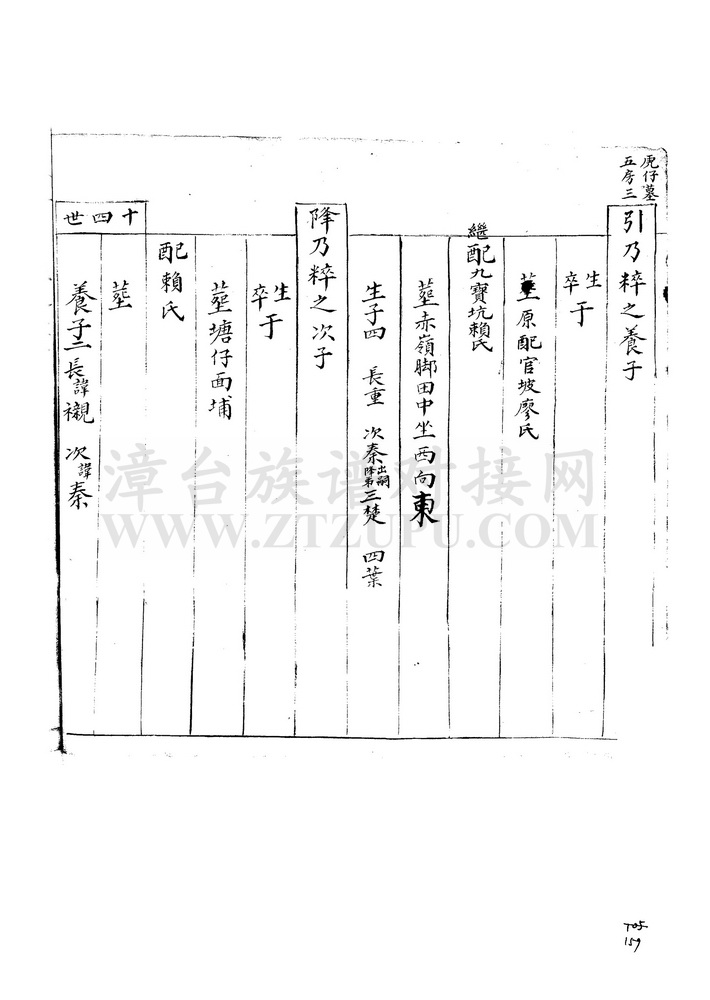 虎仔墓
五房三
引乃粹之養子
生
卒于
塟原配官坡廖氏
繼配九寶坑賴氏
塟赤嶺脚田中坐西向東
生子四 長重 次秦出嗣降弟 三楚 四葉
降乃粹之次子
生
卒于
塟塘仔面埔
配賴氏
塟
養子二長諱襯 次諱秦
十四世
漳台族谱对接网
WWW.ZTZUPU.COM
T05
159